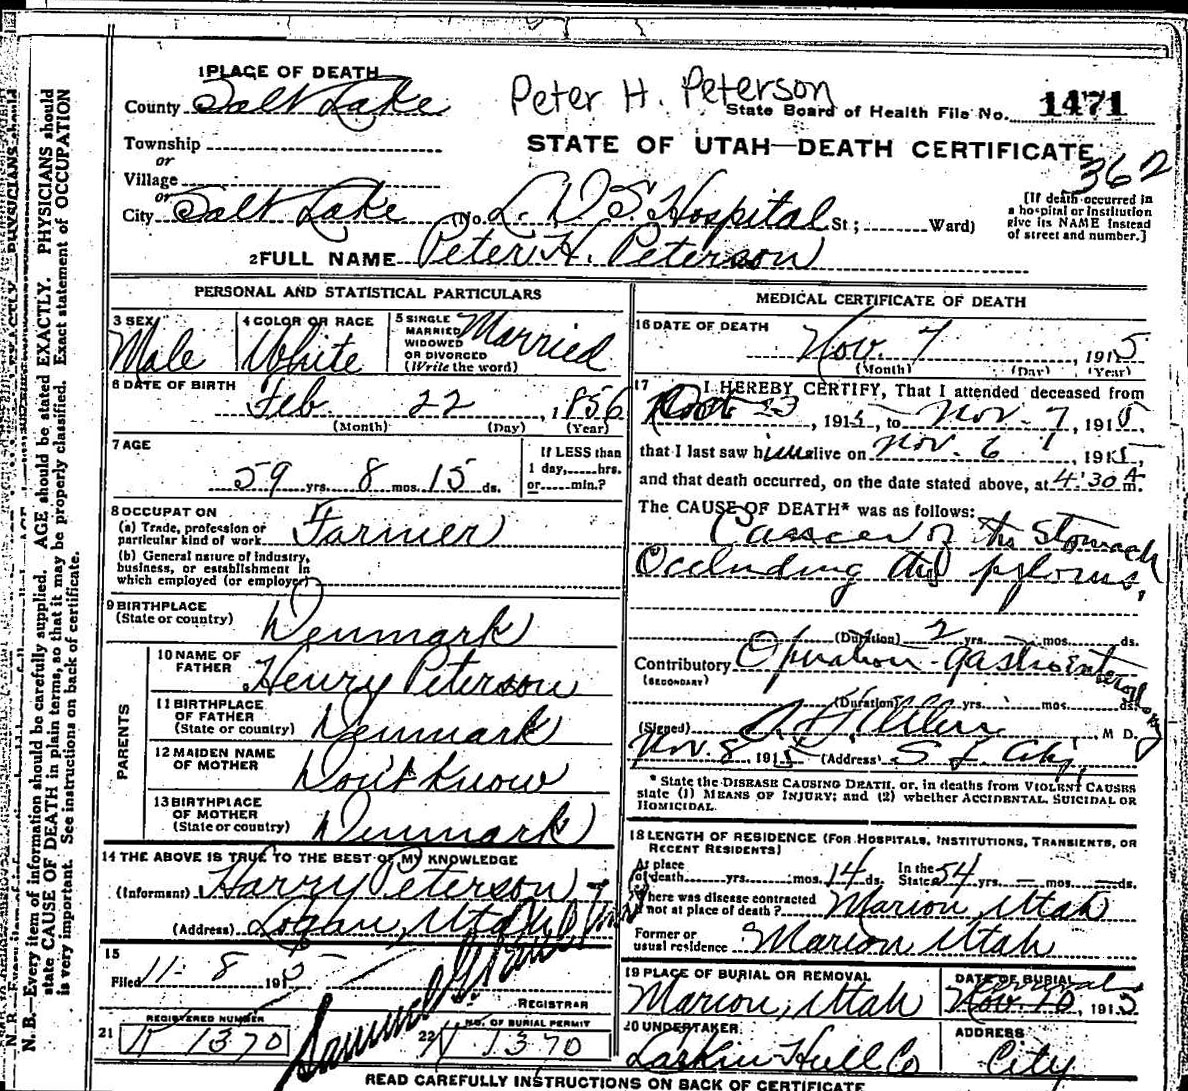 N. B. Every item of information should be carefully supplied. AGE should be stated EXACTLY. PHYSICIANS should
state CAUSE OF DEATH in plain terms, so that it may be properly classified. Exact statement of OCCUPATION
is very important. See instructions on back of certificate.
1 PLACE OF DEATH
County Salt Lake
Peter H. Peterson
State Board of Health File No. 1471
Township
or
Village
or
STATE OF UTAH—DEATH CERTIFICATE
362
City Salt Lake (No. L. D. S. Hospital St; Ward)
[If death occurred in
a hospital or institution
give its NAME instead
of street and number.]
2 FULL NAME Peter H. Peterson
PERSONAL AND STATISTICAL PARTICULARS
3 SEX Male
4 COLOR OR RACE White
5 SINGLE
MARRIED
WIDOWED
OR DIVORCED
(Write the word)
Married
6 DATE OF BIRTH
Feb 22, 1856
(Month) (Day) (Year)
7 AGE
59 yrs. 8 mos. 15 ds.
If LESS than
1 day, hrs.
or min.?
8 OCCUPATON
(a) Trade, profession or
particular kind of work Farmer
(b) General nature of industry,
business, or establishment in
which employed (or employer)
9 BIRTHPLACE
(State or country) Denmark
PARENTS
10 NAME OF
FATHER Henry Peterson
11 BIRTHPLACE
OF FATHER
(State or country) Denmark
12 MAIDEN NAME
OF MOTHER Don't Know
13 BIRTHPLACE
OF MOTHER
(State or country) Denmark
14 THE ABOVE IS TRUE TO THE BEST OF MY KNOWLEDGE
(Informant) Harry Peterson
(Address) Logan, Utah
15
Filed 11-8 1915
REGISTRAR
21 REGISTERED NUMBER
K 1370
22 NO. OF BURIAL PERMIT
K 1370
MEDICAL CERTIFICATE OF DEATH
16 DATE OF DEATH
Nov. 7, 1915
(Month) (Day) (Year)
17 I HEREBY CERTIFY, That I attended deceased from
Oct 23, 1915, to Nov. 7, 1915
that I last saw him alive on Nov. 6, 1915,
and that death occurred, on the date stated above, at 4:30 A m.
The CAUSE OF DEATH* was as follows:
Cancer of the Stomach
Occluding the pylorus,
(Duration) 2 yrs. mos. ds.
Contributory Operation - gastroenterostomy
(SECONDARY)
(Duration) yrs. mos. ds.
(Signed) M D.
Nov. 8, 1915 (Address) S. L. City,
* State the DISEASE CAUSING DEATH, or, in deaths from VIOLENT CAUSES
state (1) MEANS OF INJURY; and (2) whether ACCIDENTAL, SUICIDAL OR
HOMICIDAL.
18 LENGTH OF RESIDENCE (FOR HOSPITALS, INSTITUTIONS, TRANSIENTS, OR
RECENT RESIDENTS)
At place
of death yrs. mos. 14 ds. In the
State 54 yrs. — mos. — ds.
Where was disease contracted
if not at place of death? Marion, Utah
Former or
usual residence Marion Utah
19 PLACE OF BURIAL OR REMOVAL
Marion, Utah
DATE OF BURIAL
Nov. 10, 1915
20 UNDERTAKER
Larkin Hull Co
ADDRESS
City
READ CAREFULLY INSTRUCTIONS ON BACK OF CERTIFICATE